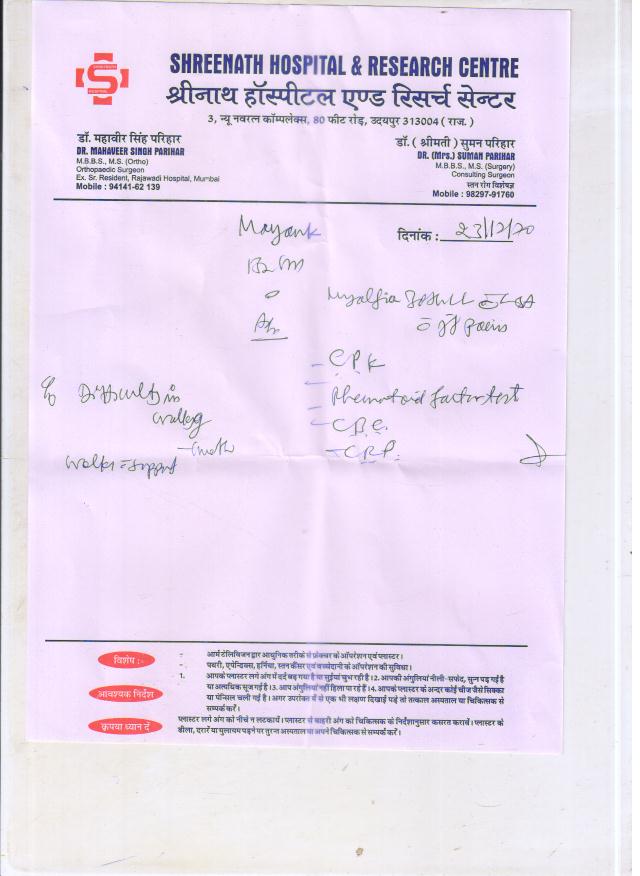 SHREENATH HOSPITAL
SHREENATH HOSPITAL & RESEARCH CENTRE
श्रीनाथ हॉस्पीटल एण्ड रिसर्च सेन्टर
3, न्यू नवरत्न कॉम्पलेक्स, 80 फीट रोड़, उदयपुर 313004 ( राज. )
डॉ. महावीर सिंह परिहार
DR. MAHAVEER SINGH PARIHAR
M.B.B.S., M.S. (Ortho)
Orthopaedic Surgeon
Ex. Sr. Resident, Rajawadi Hospital, Mumbai
Mobile : 94141-62 139
डॉ. ( श्रीमती ) सुमन परिहार
DR. (Mrs.) SUMAN PARIHAR
M.B.B.S., M.S. (Surgery)
Consulting Surgeon
स्तन रोग विशेषज्ञ
Mobile : 98297-91760
Mayank
दिनांक : 23/12/20
Myalgia
pains
CPK
Rhematoid factor test
CBC.
CRP.
Difficulty in
walking
walks support
विशेष :-
- आर्म टेलिविजन द्वारा आधुनिक तरीके से फ्रेक्चर के ऑपरेशन एवं प्लास्टर।
- पथरी, एपेन्डिक्स, हर्निया, स्तन कैंसर एवं बच्चेदानी के ऑपरेशन की सुविधा।
आवश्यक निर्देश
1. आपके प्लास्टर लगे अंग में दर्द बढ़ गया है या सुईयां चुभ रही है। 2. आपकी अंगुलियां नीली-सफेद, सुन्न पड़ गई है
या अत्यधिक सूज गई है। 3. आप अंगुलियां नहीं हिला पा रहे है। 4. आपके प्लास्टर के अन्दर कोई चीज जैसे सिक्का
या पेंसिल चली गई है। अगर उपरोक्त में से एक भी लक्षण दिखाई पड़े तो तत्काल अस्पताल या चिकित्सक से
सम्पर्क करें।
कृपया ध्यान दें
प्लास्टर लगे अंग को नीचे न लटकायें। प्लास्टर से बाहरी अंग को चिकित्सक के निर्देशानुसार कसरत करावें। प्लास्टर के
ढीला, दरारें या मुलायम पड़ने पर तुरन्त अस्पताल या अपने चिकित्सक से सम्पर्क करें।